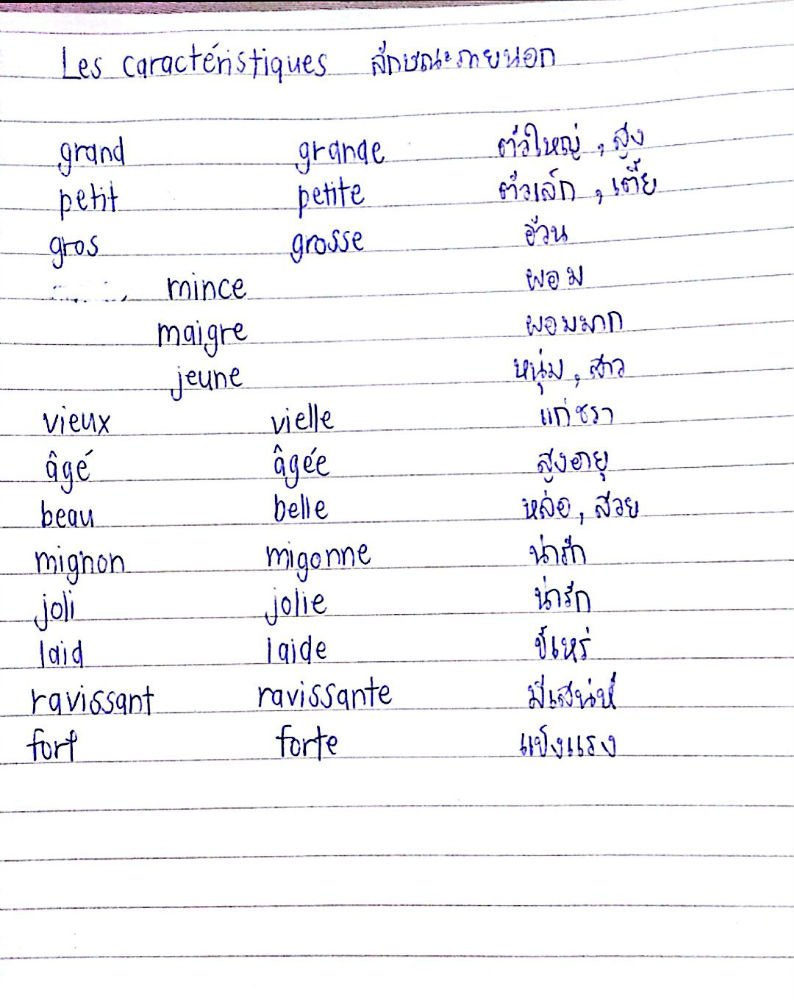 Les caractéristiques ลักษณะภายนอก
grand grande ตัวใหญ่ , สูง
petit petite ตัวเล็ก , เตี้ย
gros grosse อ้วน
mince ผอม
maigre ผอมมาก
jeune หนุ่ม , สาว
vieux vielle แก่ชรา
âgé âgée สูงอายุ
beau belle หล่อ , สวย
mignon migonne น่ารัก
joli jolie น่ารัก
laid laide ขี้เหร่
ravissant ravissante มีเสน่ห์
fort forte แข็งแรง